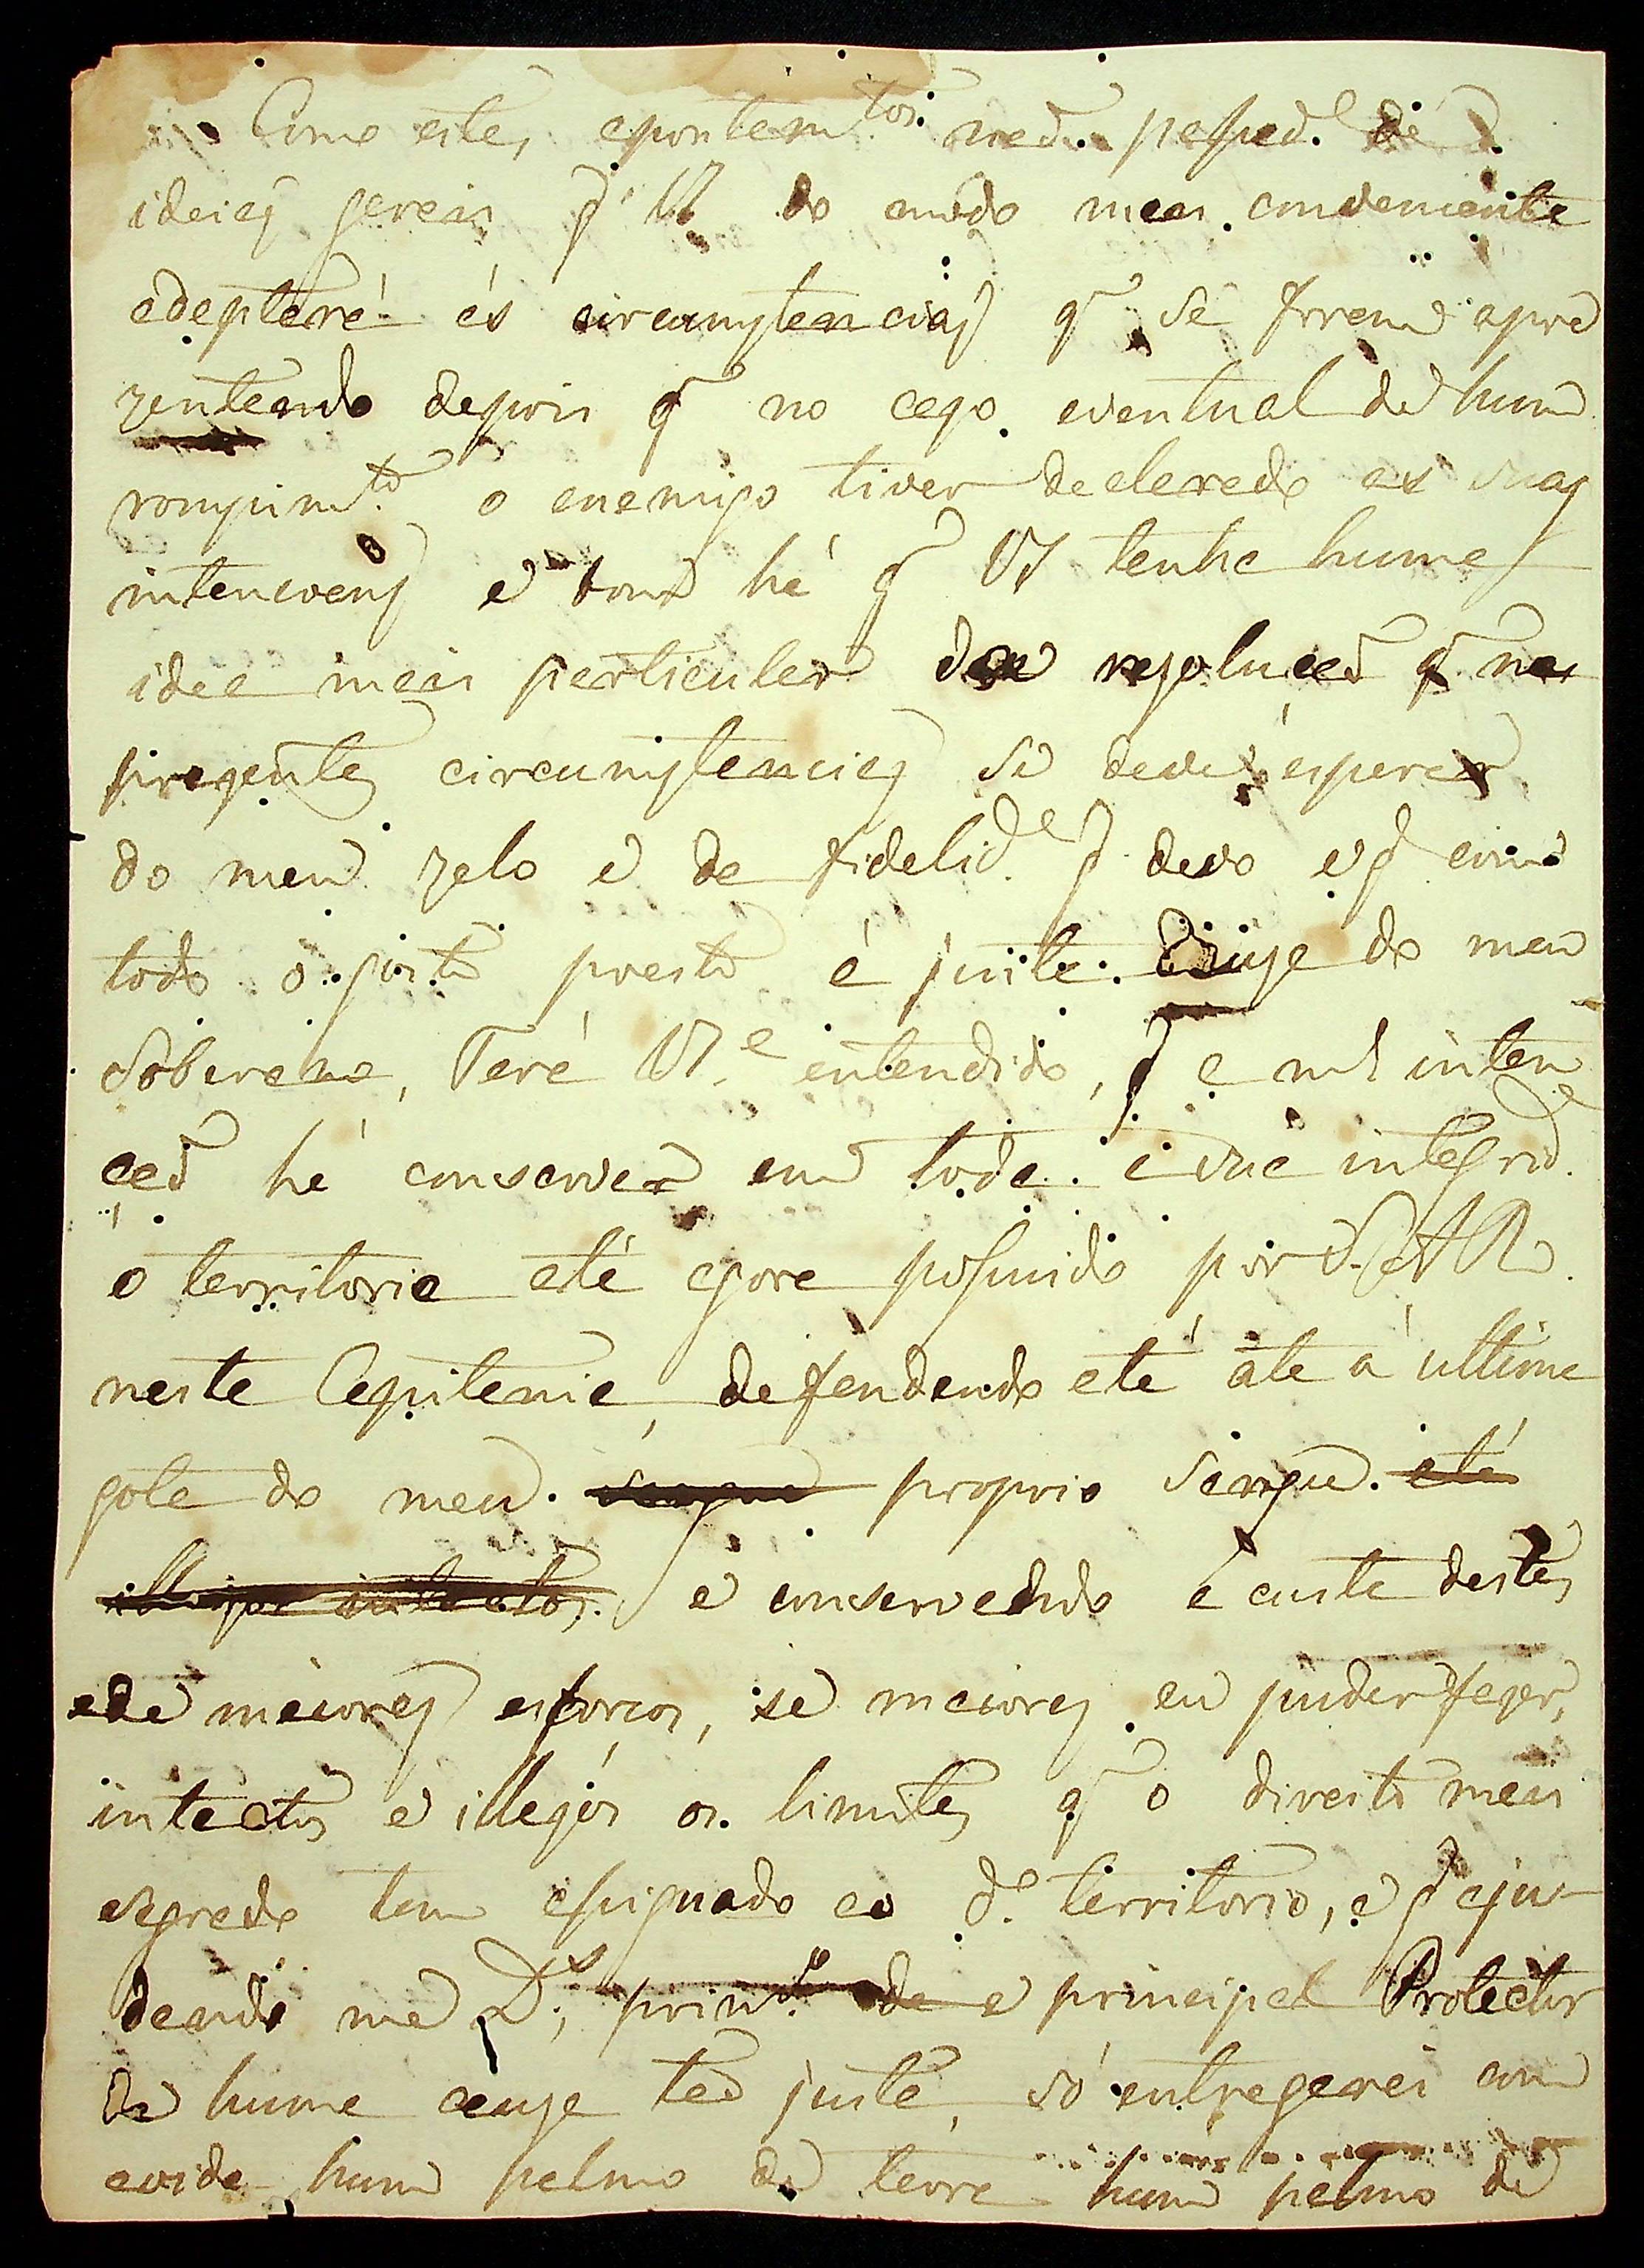 Como estes apontam.tos naõ passaõ de
ideias geraes q̃ V.S. do modo mais conveniente
adeptará ás circumstancias q̃ se forem apre
zentando depois q̃ no cazo eventual de hum
rompim.to o enemigo tiver declarado as suas
intencoens e bom há q̃ VS tenha huma
idea mais particular da rezoluçaõ q̃ nas
prezentes circumstancias se deve esperar
do meu zelo e da fidelid.e q̃ devo e q̃ com
todo o gosto presto á justa Cauza do meu
Soberano, Terá VS.e entendido, q̃ a m.a inten
çaõ hé conservar em toda a sua integrid.e
o territorio até agora possuido por S.A.R.
nesta Capitania, defendendo até ate á ultima
gota do meu sangue proprio sangue. até
illezos intactos. e conservando á custa destes
e de maiores esforcos, se maiores eu puder fazer,
intactos e illezos os limites q̃ o direito mais
sagrado tem assignado ao d.o territorio, e q̃ aju-
dando me D.s, prim.o de e principal Protector
de huma cauza taõ justa, só entregarei com
a vida hum palmo de terra hum palmo de